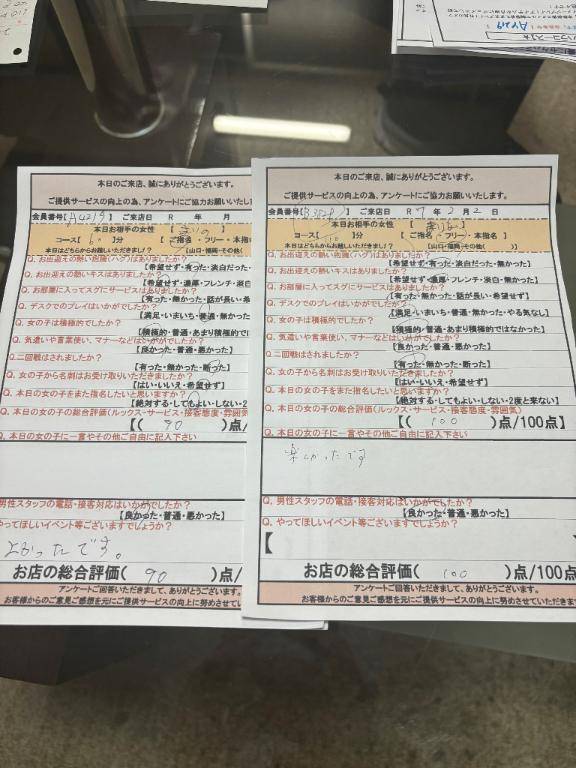 本日のご来店、誠にありがとうございます。
ご提供サービスの向上の為、アンケートにご協力お願いいたします。
会員番号【A4219】 ご来店日 R 年 月
本日お相手の女性
コース【60】分 【ご指名・フリー・本指名
本日はどちらからお越しいただきまし!? 【山口・福岡・その他(
Q. お出迎えの熱い抱擁(ハグ)はありましたか?
【希望せず・有った・淡白だった・
Q. お出迎えの熱いキスはありましたか?
【希望せず・濃厚・フレンチ・淡白
Q. お部屋に入ってスグにサービスはありましたか?
【有った・無かった・話が長い・希
Q. デスクでのプレイはいかがでしたか?
【満足・いまいち・普通・無かった
Q. 女の子は積極的でしたか?
【積極的・普通・あまり積極的では
Q. 気遣いや言葉使い、マナーなどはいかがでしたか?
【良かった・普通・悪かった】
Q.二回戦はされましたか?
【有った・無かった・断った】
Q. 女の子から名刺はお受け取りいただきましたか?
【はい・いいえ・希望せず】
Q. 本日の女の子をまた指名したいと思いますか?
【絶対する・してもよい・しない・2度
Q. 本日の女の子の総合評価(ルックス・サービス・接客態度・雰囲気
【( 90 )点/
Q. 本日の女の子に一言やその他ご自由に記入下さい
男性スタッフの電話・接客対応はいかがでしたか?
【良かった・普通・悪かった】
やってほしいイベント等ございますでしょうか?
よかったです。
お店の総合評価( 90 )点/
アンケートご回答いただきまして、ありがとうございます。
お客様からのご意見ご感想を元にご提供サービスの向上に努めさせてい
本日のご来店、誠にありがとうございます。
ご提供サービスの向上の為、アンケートにご協力お願いいたします。
ご来店日 R 7年 2月 2日
本日お相手の女性
コース【 】分 【ご指名・フリー・本指名
本日はどちらからお越しいただきまし!? 【山口・福岡・その他( )】
Q. お出迎えの熱い抱擁(ハグ)はありましたか?
【希望せず・有った・淡白だった・無かった】
Q. お出迎えの熱いキスはありましたか?
【希望せず・濃厚・フレンチ・淡白・無かった】
Q. お部屋に入ってスグにサービスはありましたか?
【有った・無かった・話が長い・希望せず】
Q. デスクでのプレイはいかがでしたか?
【満足・いまいち・普通・無かった・やる気なし】
Q. 女の子は積極的でしたか?
【積極的・普通・あまり積極的ではなかった】
Q. 気遣いや言葉使い、マナーなどはいかがでしたか?
【良かった・普通・悪かった】
Q.二回戦はされましたか?
【有った・無かった・断った】
Q. 女の子から名刺はお受け取りいただきましたか?
【はい・いいえ・希望せず】
Q. 本日の女の子をまた指名したいと思いますか?
【絶対する・してもよい・しない・2度と来ない】
Q. 本日の女の子の総合評価(ルックス・サービス・接客態度・雰囲気)
【( 100 )点/100点】
Q. 本日の女の子に一言やその他ご自由に記入下さい
楽しかったです
Q. 男性スタッフの電話・接客対応はいかがでしたか?
【良かった・普通・悪かった】
Q. やってほしいイベント等ございますでしょうか?
【
お店の総合評価( 100 )点/100点
アンケートご回答いただきまして、ありがとうございます。
お客様からのご意見ご感想を元にご提供サービスの向上に努めさせていただきま